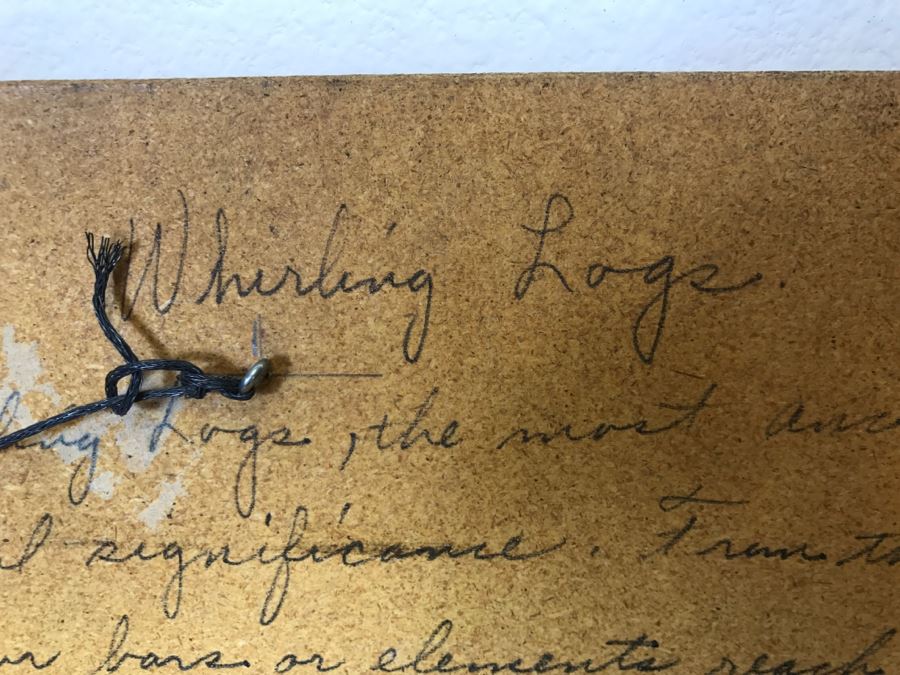 Whirling Logs.
ling Logs, the most anc
al significance. From th
ur bars or elements reach